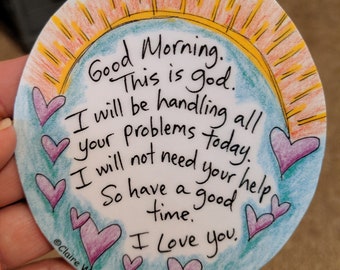 Good Morning.
This is god.
I will be handling all
your problems today.
I will not need your help
So have a good
time.
I Love you.
©Claire